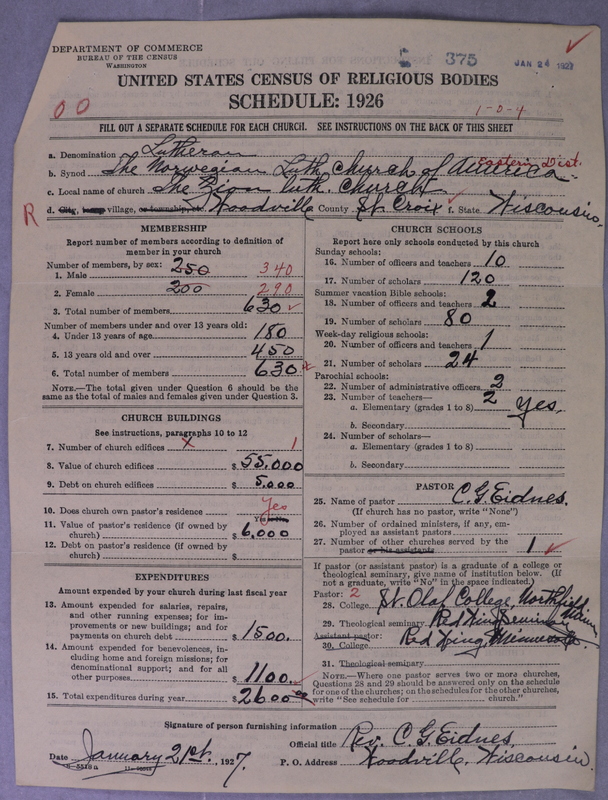 375
JAN 24 1927
DEPARTMENT OF COMMERCE
BUREAU OF THE CENSUS
WASHINGTON
UNITED STATES CENSUS OF RELIGIOUS BODIES
SCHEDULE: 1926
00
1-0-4
FILL OUT A SEPARATE SCHEDULE FOR EACH CHURCH. SEE INSTRUCTIONS ON THE BACK OF THIS SHEET
a. Denomination Lutheran
Eastern Dist.
b. Synod The Norwegian Luth. Church of America
c. Local name of church The Zion Luth. Church
R
d. City, town, village, or township, etc. Woodville County St. Croix f. State Wisconsin.
MEMBERSHIP
Report number of members according to definition of member in your church
Number of members, by sex:
1. Male 250 340
2. Female 200 290
3. Total number of members 630
Number of members under and over 13 years old:
4. Under 13 years of age 180
5. 13 years old and over 450
6. Total number of members 630
NOTE.—The total given under Question 6 should be the same as the total of males and females given under Question 3.
CHURCH BUILDINGS
See instructions, paragraphs 10 to 12
7. Number of church edifices X 1
8. Value of church edifices $ 55.000
9. Debt on church edifices $ 5.000
10. Does church own pastor's residence Yes
Yes or No
11. Value of pastor's residence (if owned by church) $ 6,000
12. Debt on pastor's residence (if owned by church) $
EXPENDITURES
Amount expended by your church during last fiscal year
13. Amount expended for salaries, repairs, and other running expenses; for improvements or new buildings; and for payments on church debt $ 1500.
14. Amount expended for benevolences, including home and foreign missions; for denominational support; and for all other purposes $ 1100.
15. Total expenditures during year $ 2600
CHURCH SCHOOLS
Report here only schools conducted by this church
Sunday schools:
16. Number of officers and teachers 10
17. Number of scholars 120
Summer vacation Bible schools:
18. Number of officers and teachers 2
19. Number of scholars 80
Week-day religious schools:
20. Number of officers and teachers 1
21. Number of scholars 24
Parochial schools:
22. Number of administrative officers 2
23. Number of teachers— 2
a. Elementary (grades 1 to 8) Yes.
b. Secondary
24. Number of scholars—
a. Elementary (grades 1 to 8)
b. Secondary
PASTOR
25. Name of pastor C. G. Eidnes.
(If church has no pastor, write "None")
26. Number of ordained ministers, if any, employed as assistant pastors
27. Number of other churches served by the pastor or his assistants 1
If pastor (or assistant pastor) is a graduate of a college or theological seminary, give name of institution below. (If not a graduate, write "No" in the space indicated.)
Pastor: 2
28. College St. Olaf College, Northfield Minn
29. Theological seminary Red Wing Seminary
Assistant pastor: Red Wing, Minnesota
30. College
31. Theological seminary
NOTE.—Where one pastor serves two or more churches, Questions 28 and 29 should be answered only on the schedule for one of the churches; on the schedules for the other churches, write "See schedule for church."
Signature of person furnishing information
Official title Rev. C. G. Eidnes.
Date January 21st, 1927. P. O. Address Woodville, Wisconsin.